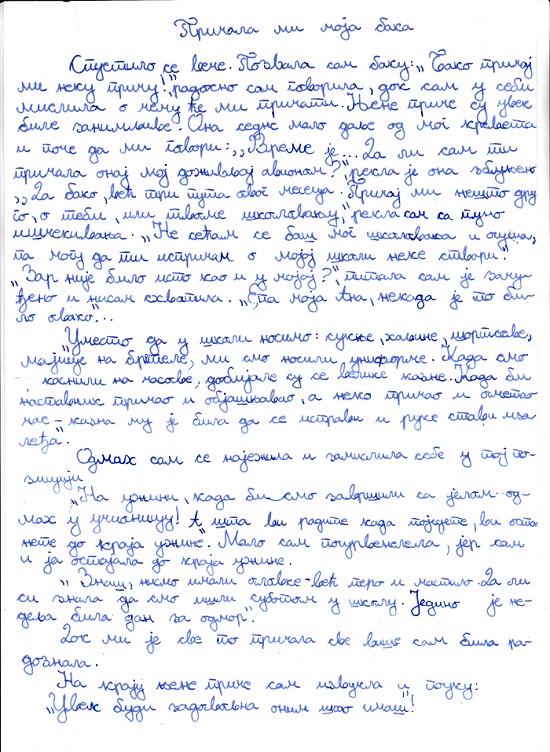 Причала ми моја бака
Спустило се вече. Позвала сам баку: „Бако причај
ми неку причу!", радосно сам говорила, док сам у себи
мислила о чему ће ми причати. Њене приче су увек
биле занимљиве. Она седне мало даље од мог кревета
и поче да ми говори: „Време је... Да ли сам ти
причала онај мој доживљај авионом?", рекла је она збуњено
„Да бако, већ три пута овог месеца. Причај ми нешто дру
го, о теби, или твоме школовању," рекла сам са пуно
ишчекивања. „Не сећам се баш мог школовања и оцена,
па могу да ти испричам о мојој школи неке ствари."
„Зар није било исто као и у мојој?", питала сам је зачу
ђено и нисам схватила. „Епа моја Ана, некада је то би-
ло овако...
„Уместо да у школи носимо: сукње, хаљине, шортсеве,
мајице на бретеле, ми смо носили униформе. Када смо
каснили на часове, добијале су се велике казне. Када би
наставник причао и објашњавао, а неко причао и ометао
час - казна му је била да се исправи и руке стави иза
леђа."
Одмах сам се најежила и замислила себе у тој по-
зицији.
„На ужини, када би смо завршили са јелом од-
мах у учионицу! А шта ви радите када поједете, ви оста
нете до краја ужине". Мало сам поцрвенела, јер сам
и ја остајала до краја ужине.
„Знаш, нисмо имали оловке - већ перо и мастило. Да ли
си знала да смо ишли суботом у школу. Једино је не-
деља била дан за одмор".
Док ми је све то причала све више сам била ра-
дознала.
На крају њене приче сам извукла и поуку:
„Увек буди задовољна оним што имаш"!